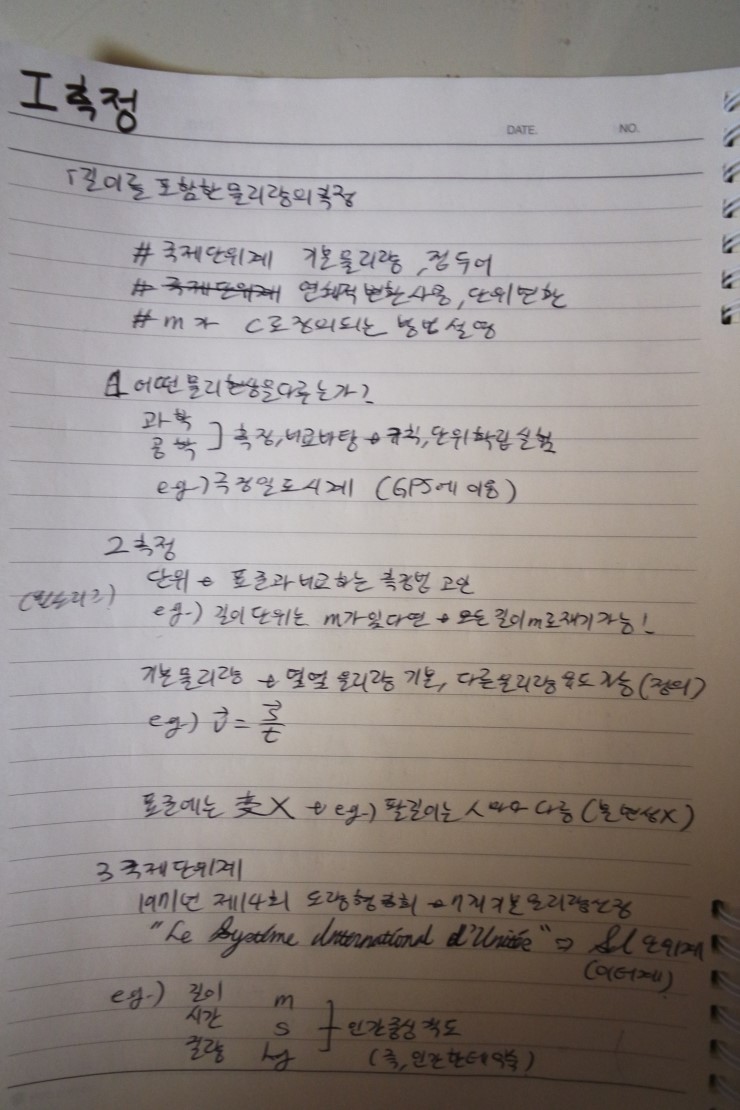 I 측정
DATE. NO.
1 길이를 포함한 물리량의 측정
# 국제단위계 기본물리량, 접두어
# 국제단위계 연쇄적 변환 사용, 단위변환
# m가 c로 정의되는 방법 설명
1 어떤 물리현상을 다루는가?
과학
공학 ] 측정, 비교바탕 → 규칙, 단위확립 실험
e.g.) 극정밀도 시계 (GPS에 이용)
2 측정
단위 → 표준과 비교하는 측정법 고안
e.g.) 길이 단위는 m가 있다면 → 모든 길이 m로 재기 가능!
기본물리량 → 몇몇 물리량 기본, 다른 물리량 유도 가능 (정의)
e.g.) v⃗ = s⃗/t
표준에는 변 X → e.g.) 팔길이는 사람마다 다름 (불변성X)
3 국제단위계
1971년 제14회 도량형총회 → 7개 기본물리량 선정
"Le Système International d'Unités" ⇒ SI 단위계
(미터계)
e.g.) 길이 m
시간 s ] 인간중심 척도
질량 kg (즉, 인간한테 익숙)